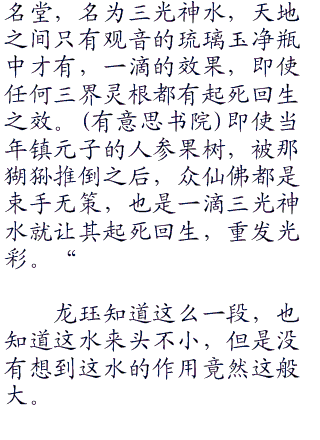 名堂，名为三光神水，天地
之间只有观音的琉璃玉净瓶
中才有，一滴的效果，即使
任何三界灵根都有起死回生
之效。(有意思书院)即使当
年镇元子的人参果树，被那
猢狲推倒之后，众仙佛都是
束手无策，也是一滴三光神
水就让其起死回生，重发光
彩。“
龙珏知道这么一段，也
知道这水来头不小，但是没
有想到这水的作用竟然这般
大。